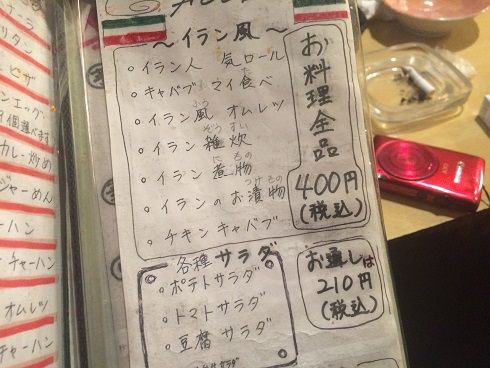 〜イラン風〜
。イラン人 気ロール
。キャバブ マイ食べ
。イラン風 オムレツ
。イラン 雑炊
ぞうすい
。イラン 煮物
にもの
。イランのお漬物
つけもの
。チキンキャバブ
お料理全品
400円
(税込)
各種サラダ
。ポテトサラダ
。トマトサラダ
。豆腐サラダ
お通しは
210円
(税込)
リタン
ピザ
ンエッグ
カレー炒め
ジャーめん
ーハン
チャーハン
オムレツ
チャーハン